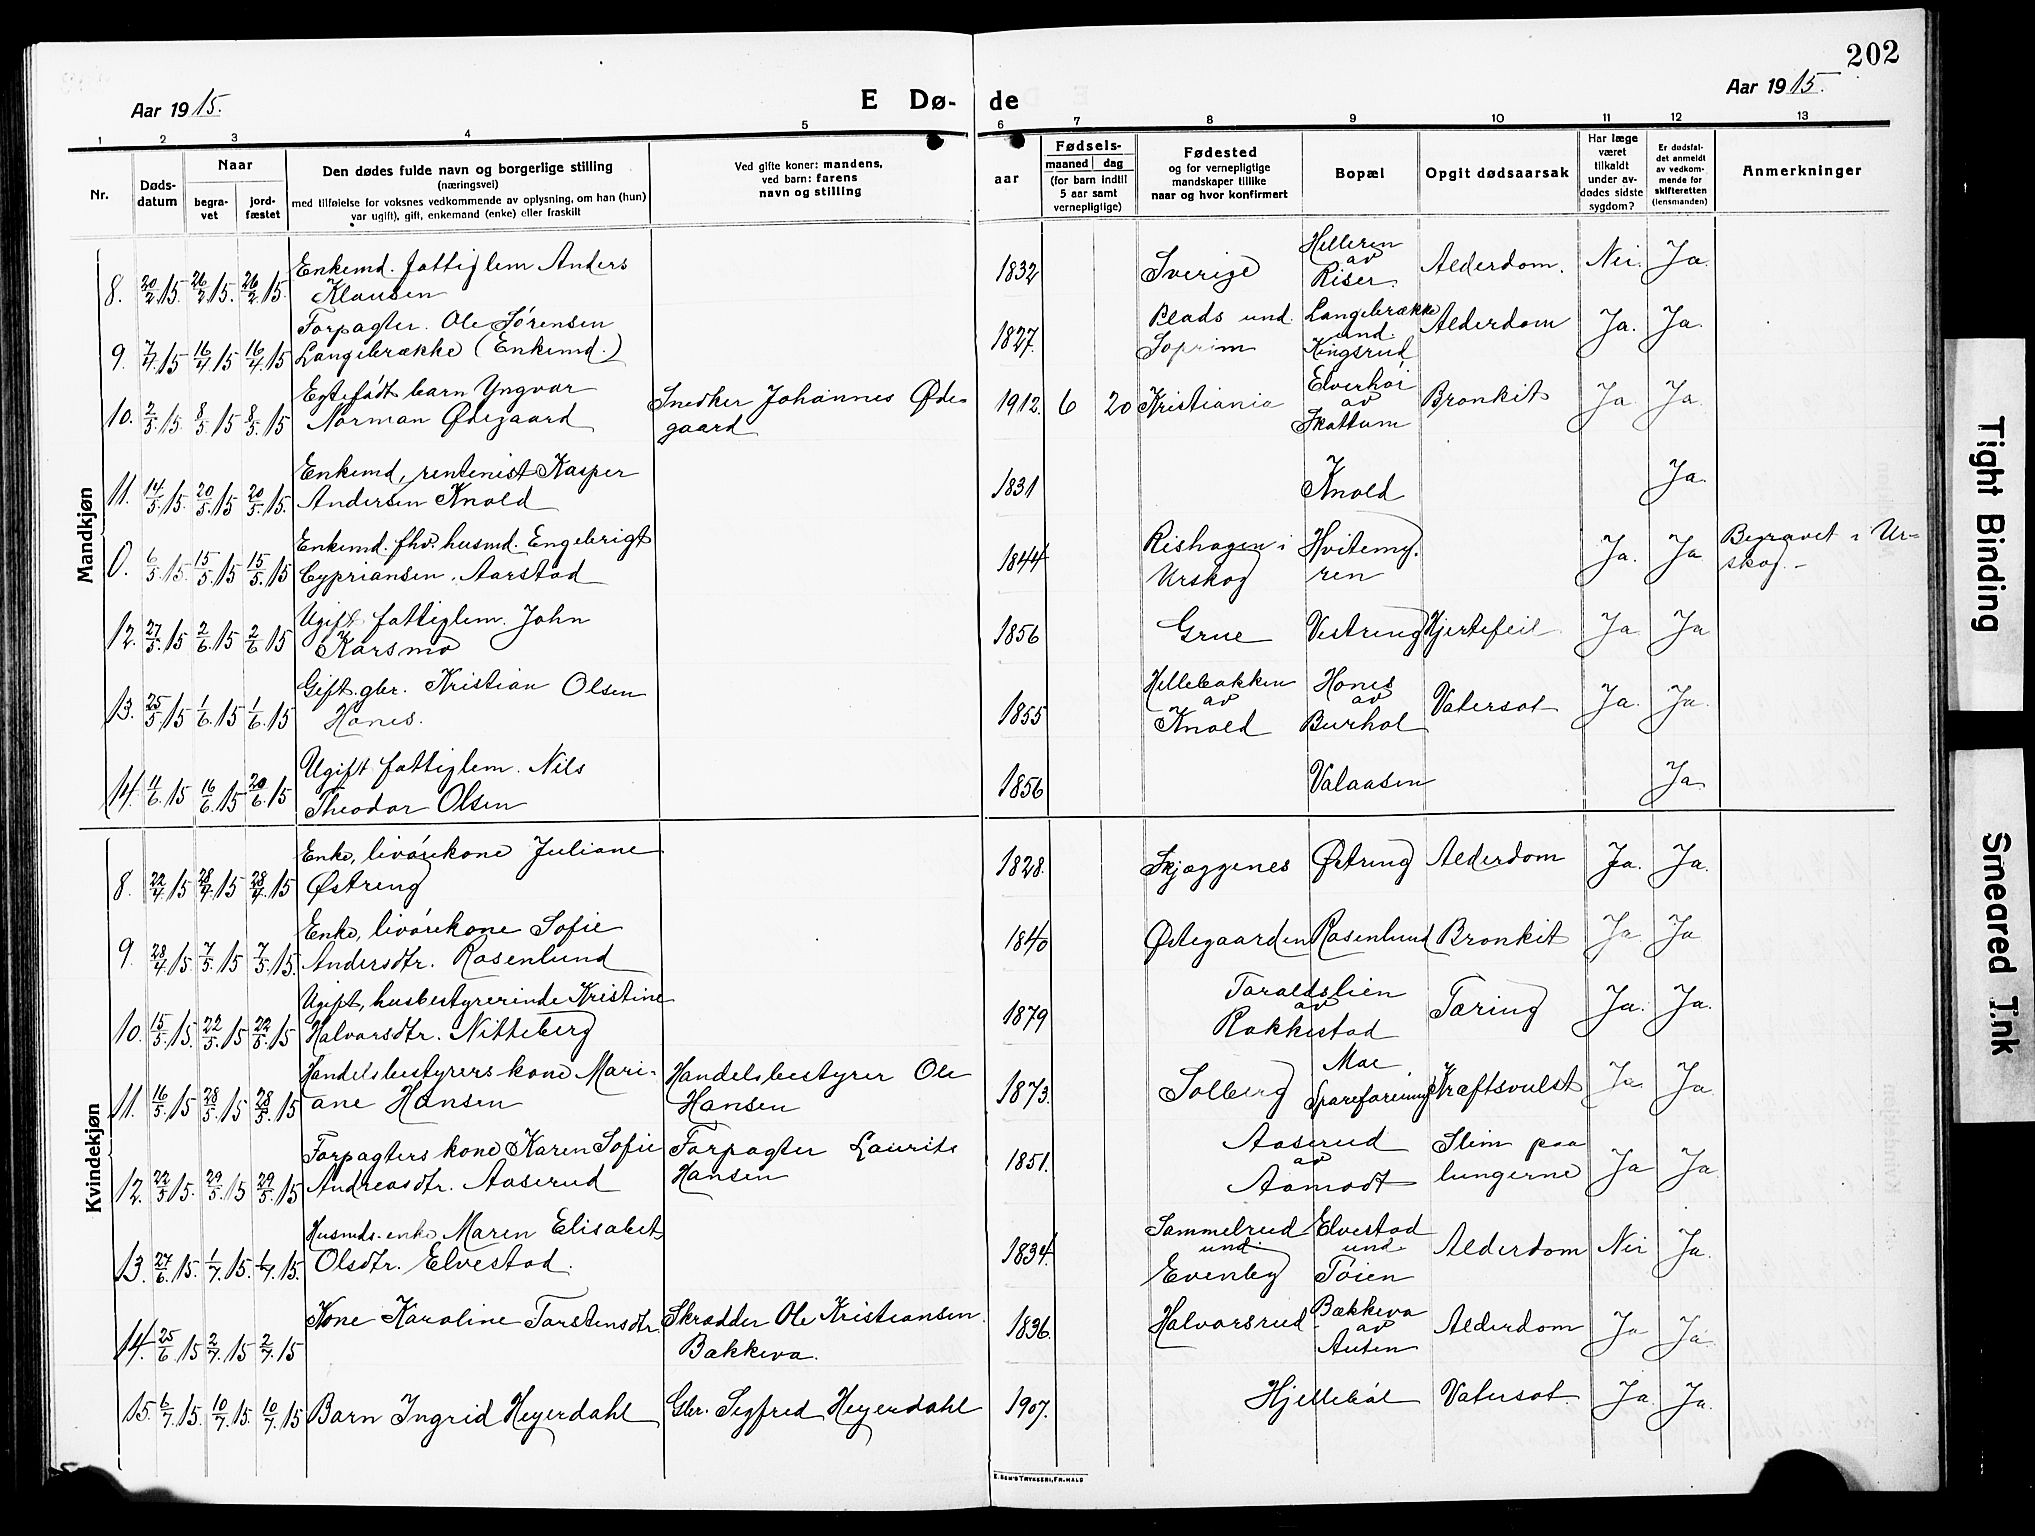 202
Aar 1915.
E Dø-
de
Aar 1915.
1 2 3 4 5 6 7 8 9 10 11 12 13
Nr.
Døds-
datum
Naar
begra-
vet
jord-
fæstet
Den dødes fulde navn og borgerlige stilling
(næringsvei)
med tilføielse for voksnes vedkommende av oplysning, om han (hun)
var ugift), gift, enkemand (enke) eller fraskilt
Ved gifte koner: mandens,
ved barn: farens
navn og stilling
aar
Fødsels-
maaned dag
(for barn indtil
5 aar samt
vernepligtige)
Fødested
og for vernepligtige
mandskaper tillike
naar og hvor konfirmert
Bopæl
Opgit dødsaarsak
Har læge
været
tilkaldt
under av-
dødes sidste
sygdom?
Er dødsfal-
det anmeldt
av vedkom-
mende for
skifteretten
(lensmanden)
Anmerkninger
Mandkjøn
8. 20/2 15. 26/2 15. 26/2 15. Enkemd. fattiglem Anders
Klausen
1832 Sverige Helleren
av
Riser. Alderdom. Nei. Ja.
9. 7/4 15 16/4 15 16/4 15 Forpagter. Ole Sørensen
Langebrække (Enkemd.)
1827. Plads und.
Soprim Langebrække
und.
Kingsrud Alderdom Ja. Ja.
10. 2/5 15. 8/5 15 8/5 15 Egtefødt barn Yngvar
Norman Ødegaard
Snedker Johannes Øde-
gaard
1912. 6 20 Kristiania Elverhöi
av
Skattum Bronkit Ja Ja.
11. 14/5 15 20/5 15 20/5 15. Enkemd, rentenist Kasper
Andersen Knold
1831 Knold Ja.
0. 6/5 15. 15/5 15 15/5 15 Enkemd. fhv. husmd. Engebrigt
Cypriansen. Aarstad
1844 Rishagen i
Urskog Hvitemy-
ren Ja. Ja. Begravet i Ur-
skog. -
12. 27/5 15 2/6 15 2/6 15 Ugift fattiglem. John
Karsmo
1856 Grue Vestreng Hjertefeil Ja Ja
13. 25/5 15 1/6 15 1/6 15 Gift. gbr. Kristian Olsen
Hones.
1855 Hellebakken
av
Knold Hones
av
Burhol Vatersot Ja. Ja.
14. 11/6 15 16/6 15 20/6 15 Ugift fattiglem. Nils
Theodor Olsen
1856 Valaasen Ja
Kvindekjøn
8. 22/4 15 28/4 15 28/4 15 Enke, livörekone Juliane
Østreng
1828. Skjæggenes Østreng Alderdom Ja. Ja.
9. 28/4 15 7/5 15 7/5 15. Enke, livörekone Sofie
Andersdtr. Rosenlund
1840 Østegaarden Rosenlund Bronkit Ja. Ja
10. 15/5 15. 22/5 15 22/5 15 Ugift, husbestyrerinde Kristine
Halvorsdtr. Nitteberg
1879 Toraldslien
av
Rakkestad Tæring Ja. Ja.
11. 16/5 15 28/5 15 28/5 15 Handelsbestyrers kone Mari-
ane Hansen
Handelsbestyrer Ole
Hansen
1873. Solberg Mae
Spareforening Kræftsvulst Ja Ja
12. 22/5 15. 29/5 15 29/5 15 Forpagters kone Karen Sofie
Andreasdtr. Aaserud
Forpagter Laurits
Hansen
1851. Aaserud
av
Aamodt Slim paa
lungerne Ja Ja
13. 27/6 15. 1/7 15. 1/7 15. Husmds. enke Maren Elisabet
Olsdtr. Elvestad.
1834. Sammelrud
und.
Evenby Elvestad
und.
Töien Alderdom Nei Ja.
14. 25/6 15 2/7 15 2/7 15 Kone Karoline Torstensdtr.
Skrædder Ole Kristiansen.
Bækkeva.
1836. Halvorsrud Bækkeva
av
Auten Alderdom Ja Ja
15. 6/7 15. 10/7 15. 10/7 15 Barn Ingrid Heyerdahl
Gbr. Segfred Heyerdahl
1907. Hjellebøl Vatersot. Ja Ja.
E. SEM'S TRYKKERI, FR.HALD
Tight Binding
Smeared Ink